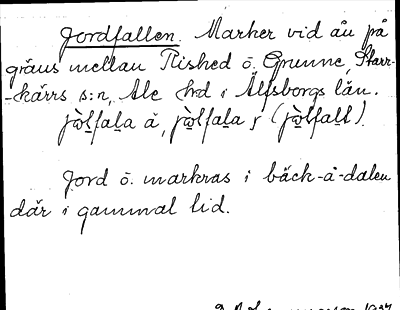 Jordfallen. Marker vid ån på
gräns mellan Rished o. Grunne, Starr-
-kärrs s:n, Ale hd i Älfsborgs län.
jòḻfaḻa å, jòḻfaḻa f (jòḻfaḻḻ).
Jord o. markras i bäck-å-dalen
där i gammal tid.